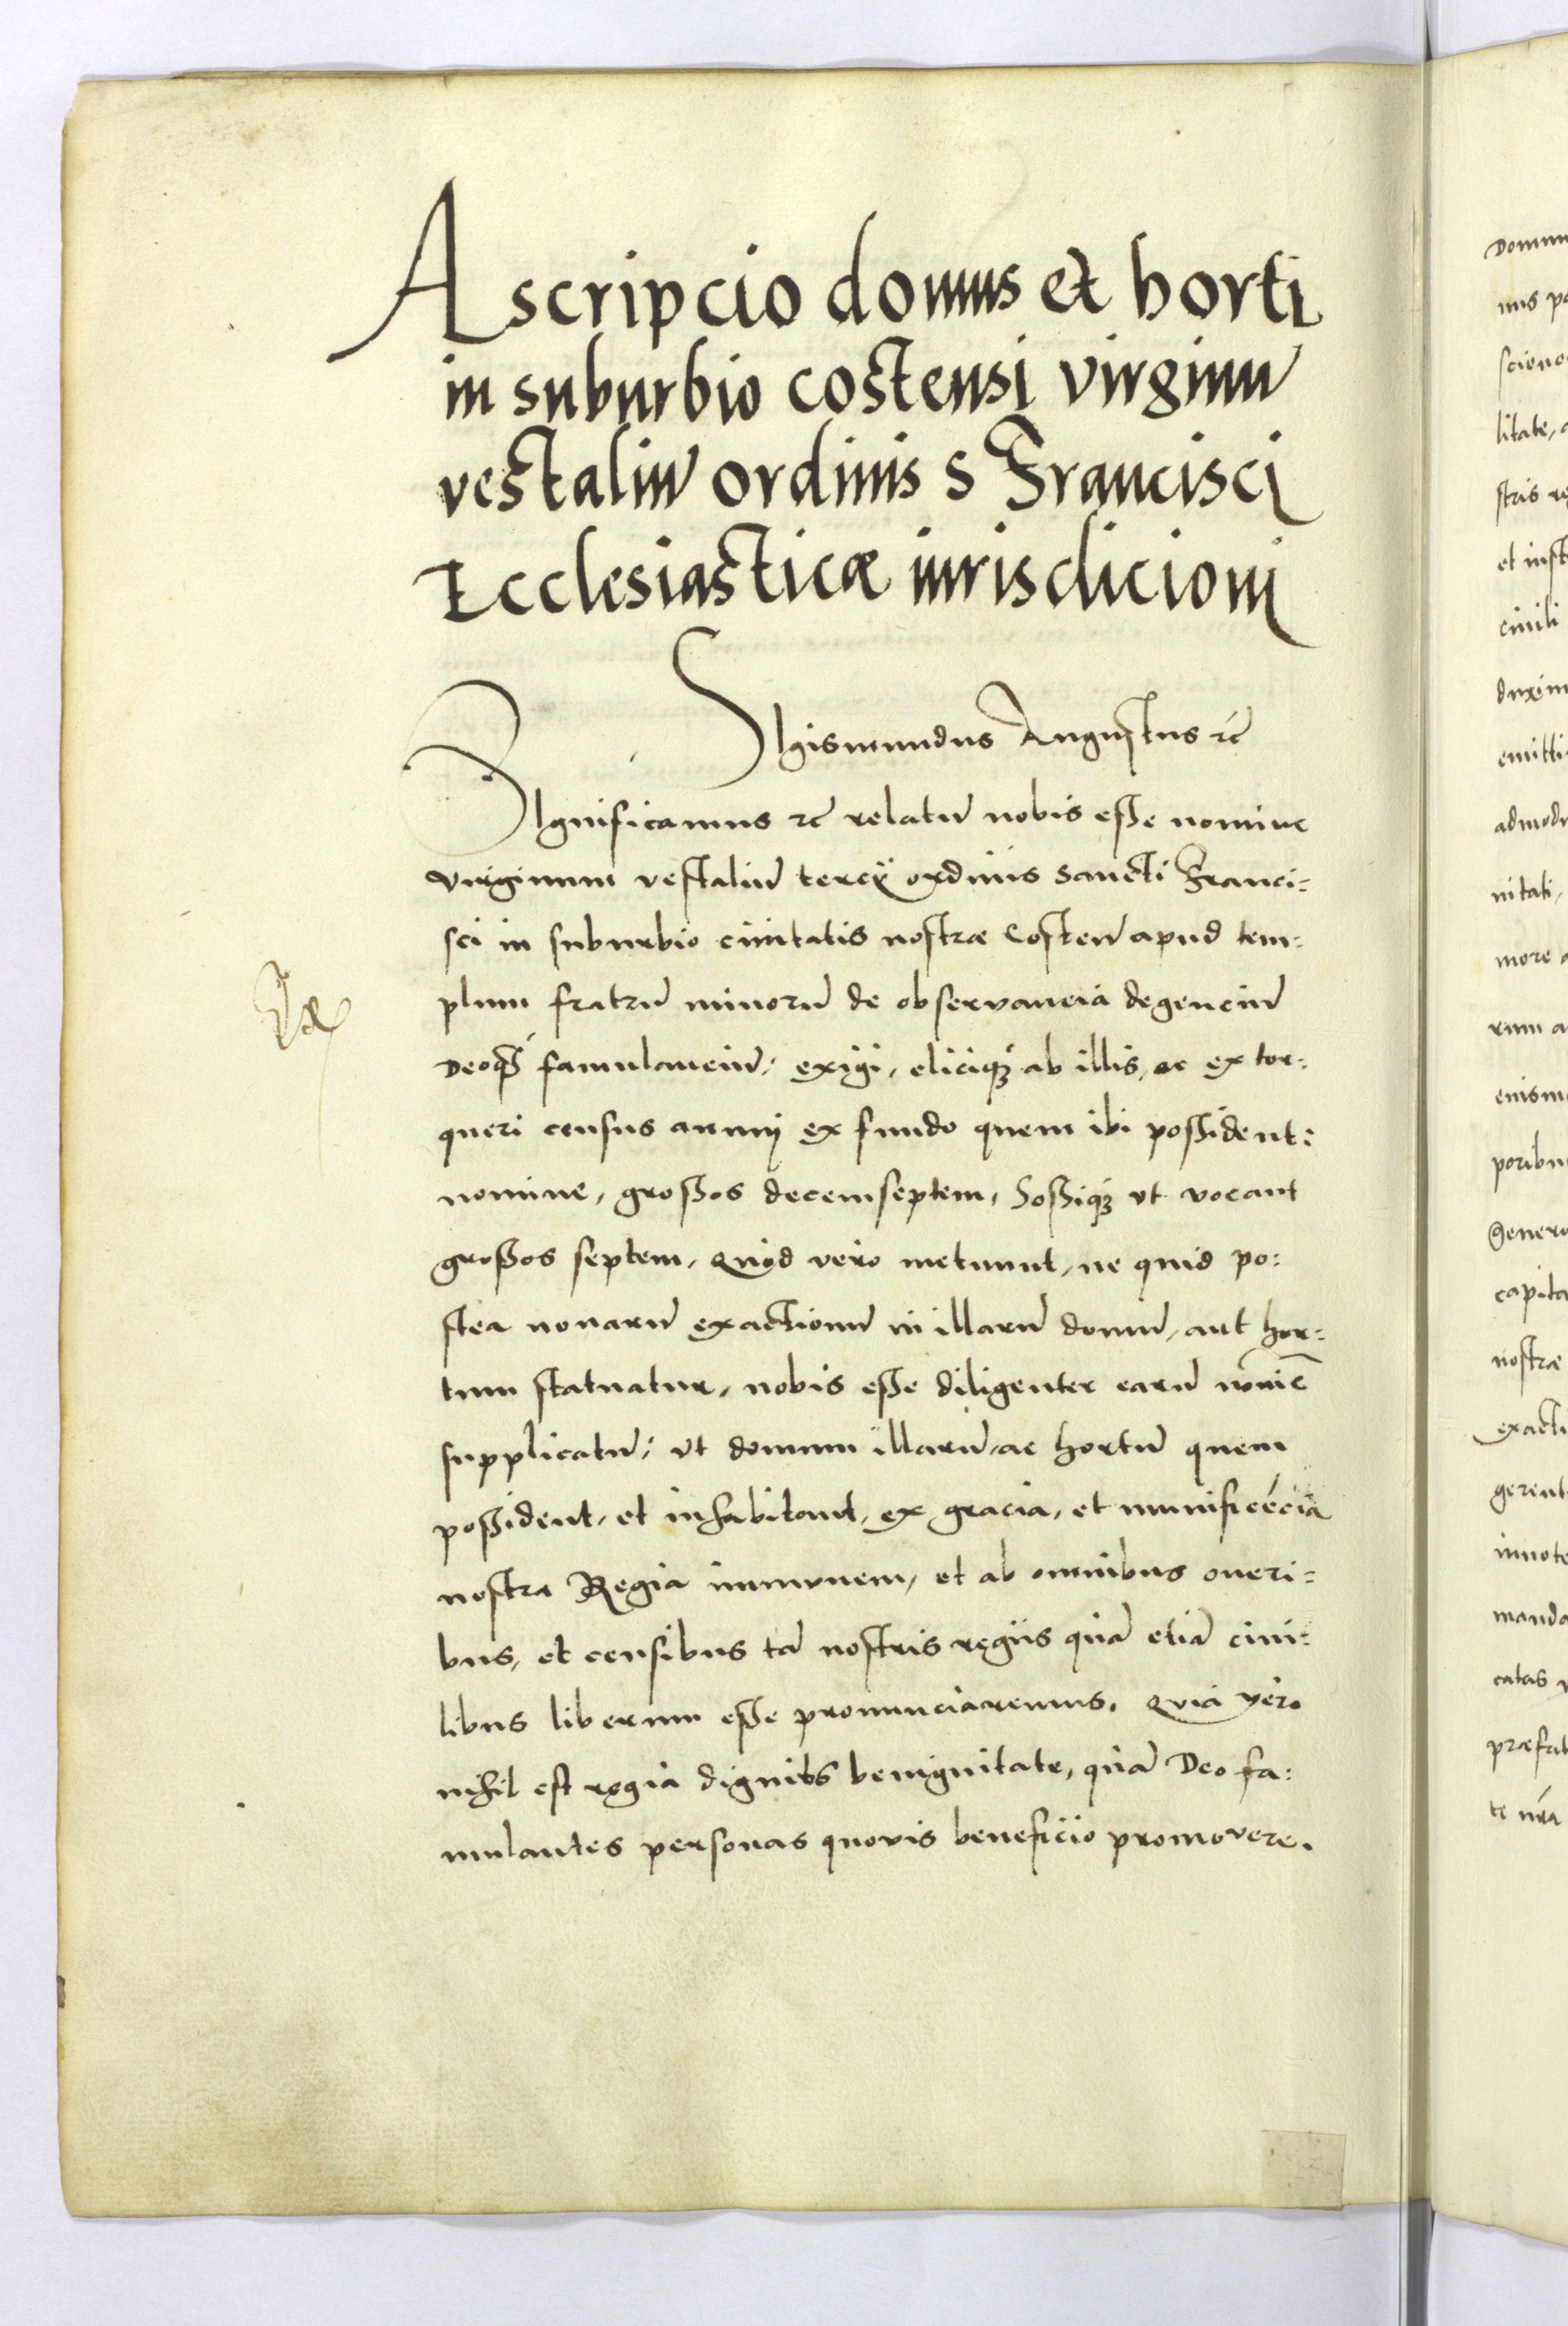 Ascripcio domus et horti
in suburbio costensi virginū
vestaliū ordinis s Francisci
Ecclesiasticæ iurisdicioni
Sigismundus Augustus ꝛc
Significamus ꝛc relatū nobis esse nomine
virginum vestaliū tercij ordinis Sancti Franci=
sci in suburbio ciuitatis nostræ Costeñ apud tem=
plum fratrū minorū de observancia degenciū
Deoq́ʒ famulanciū: exigi, eliciq́ʒ ab illis, ac extor=
queri census annuj ex fundo quem ibi possident:
nomine, grossos decemseptem, Sossiq́ʒ vt vocant
grossos septem, Quod vero metuunt, ne quid po:
stea nouarū exactionū in illarū domū, aut hor=
tum statuatur, nobis esse diligenter earū noīe
supplicatū: vt domum illarū, ac hortū quem
possident, et inhabitant, ex gracia, et munificēcia
nostra Regia immunem, et ab omnibus oneri=
bus, et censibus tā nostris regiis quā etiā ciui=
libus liberum esse pronunciaremus. Quia vero
nihil est regia dignius benignitate, quā Deo fa:
mulantes personas quovis beneficio promovere.
domum
nus
litate,
stris
et inst
ciuili
duxim
emitti
admodu
nitati,
more
rum a
poribu
genero
capita
nostræ
exacti
gerent
innote
manda
catas
præfat